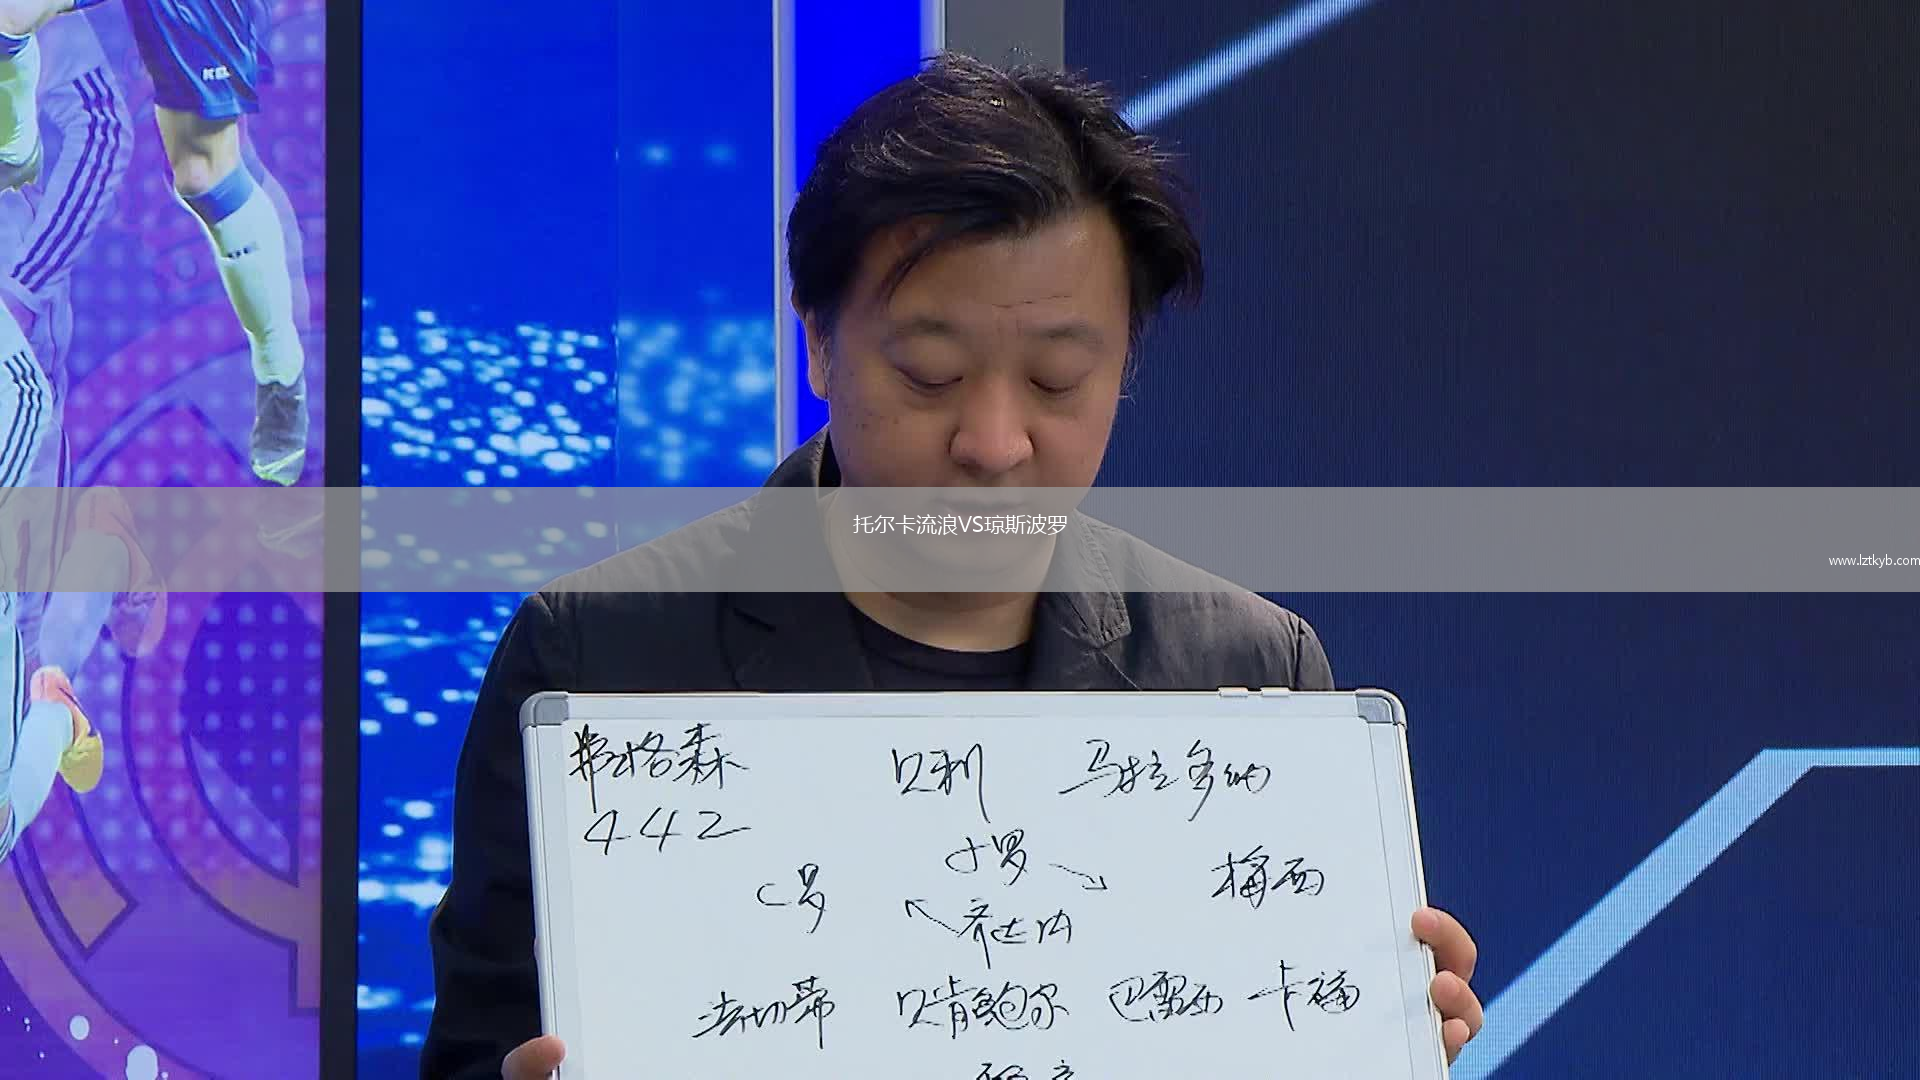 托尔卡流浪VS琼斯波罗
www.lztkyb.com
弗格森 贝利 马拉多纳
442
小罗
C罗 梅西
齐达内
法切蒂 贝肯鲍尔 巴雷西 卡福